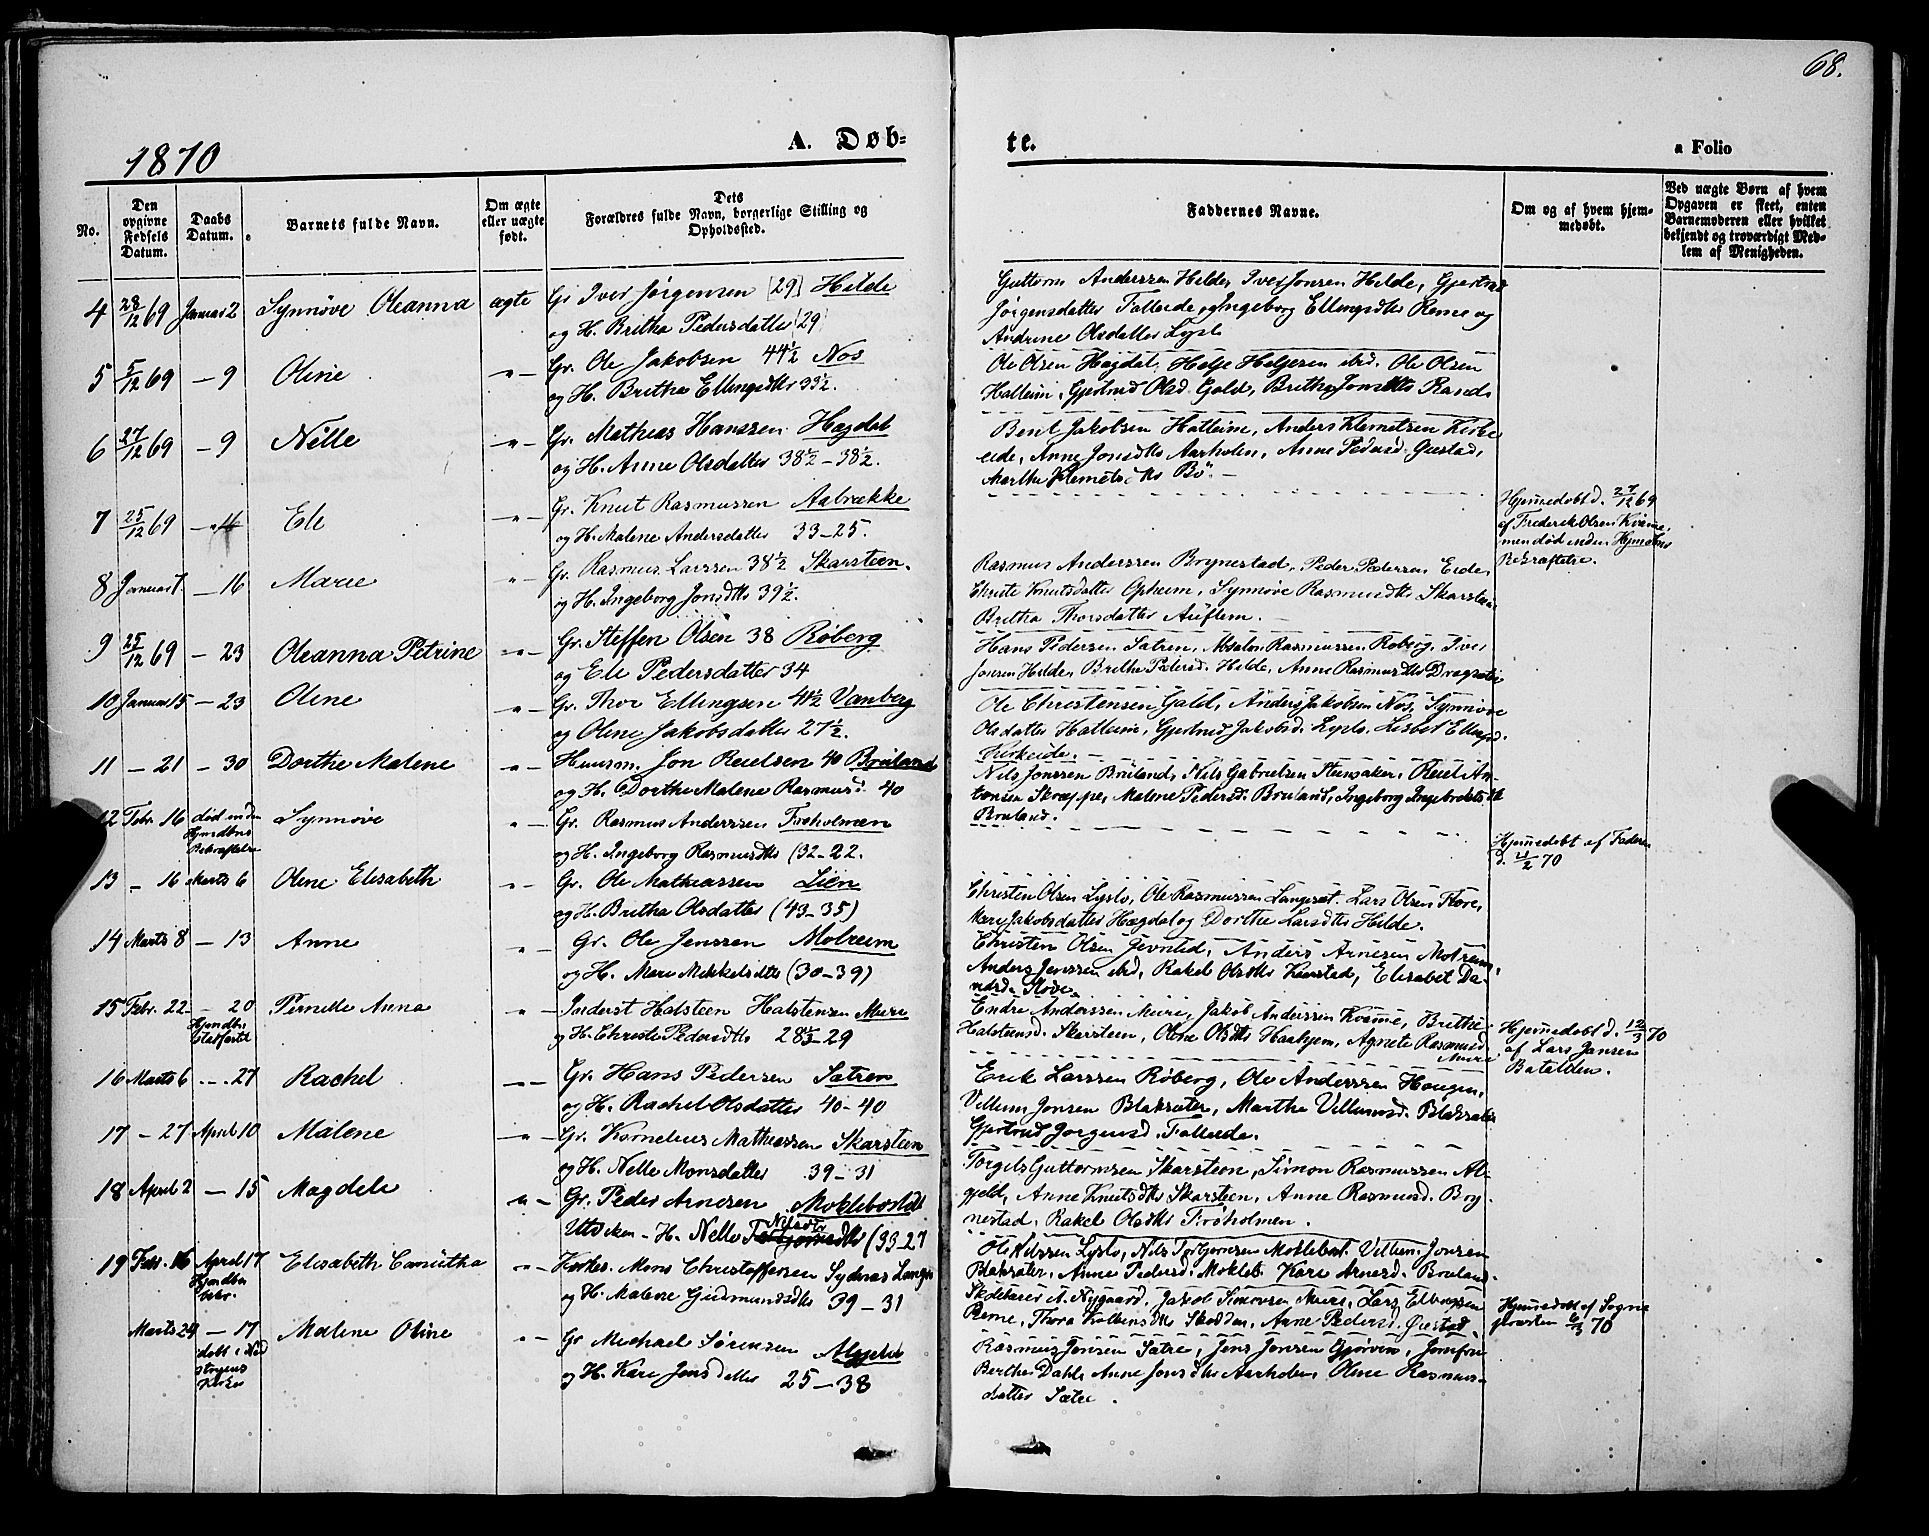 68.
1870
A. Døb-
te.
a Folio
No.
Den opgivne Fødsels Datum.
Daabs Datum.
Barnets fulde Navn.
Om ægte eller uægte født.
Dets Forældres fulde Navn, borgerlige Stilling og Opholdssted.
Faddernes Navne.
Om og af hvem hjem-
medøbt.
Ved uægte Børn af hvem
Opgaven er skeet, enten
Barnemoderen eller hvilket
bekjendt og troværdigt Med-
lem af Menigheden.
4 28/12 69 Januar 2 Synnøve Oleanna ægte Gr Iver Jørgensen [29] Hilde
og H. Britha Pedersdatter [29]
Guttorm Anderssen Hilde, Iver Jonsen Hilde, Gjertrud
Jørgensdatter Falleide og Ingeborg Ellingsdtr Reme og
Andrine Olsdatter Lyslo
5 5/12 69 — 9 Oline — " — Gr. Ole Jakobsen 44½ Nos
og H. Britha Ellingsdtr 39½.
Ole Olsen Hægdal, Helje Heljesen ibid. Ole Olsen
Halleim, Gjertrud Olsd. Gald, Britha Jonsdtr
6 27/12 69 — 9 Nille — " — Gr. Mathias Hanssen Hægdal
og H. Anne Olsdatter 38½ — 38½.
Bent Jakobsen Hatleim, Anders Klemetsen Kirke
eide, Anne Jonsdtr Aarholen, Anne Pedersd. Gustad,
Marthe Klemetsdtr Bø. —
7 25/12 69 Eli — " — Gr. Knut Rasmussen Aabrække
og H. Malene Andersdatter 33 — 25.
Hjemmedøbt d. 27/12 69
af Frederik Olsen Kvame,
men død inden Hjmdbns
Bekræftelse.
8 Januar 1. — 16 Marie " Gr. Rasmus Larssen 38½ Skarsteen.
og H. Ingeborg Jonsdtr 39½.
Rasmus Anderssen Brynestad, Peder Pedersen Eide,
Christe Knutsdatter Opheim, Synnøve Rasmusdtr Skarsteen
Britha Thorsdatter Auflem. —
9 25/12 69 — 23 Oleanna Petrine — " — Gr. Steffen Olsen 38 Røberg
og Eli Pedersdatter 34
Hans Pedersen Sætren, Absalon Rasmussen Røberg, Iver
Jonsen Hilde, Britha Pedersd. Hilde, Anne Rasmusdtr
10 Januar 15 — 23 Oline — " — Gr. Thor Ellingsen 41½ Vanberg
og Oline Jakobsdatter 27½.
Ole Christensen Gald, Anders Jakobsen Nos, Synnøve
Olsdatter Hatleim, Gjertrud Jakobsd. Lyslo, Lisbet Ellingsd.
Kirkeide. —
11 — 21 — 30 Dorthe Malene — " — Huusm. Jon Reielsen 40 Bruland
og H. Dorthe Malene Rasmusd. 40
Nils Jonssen Bruland, Nils Gabrielsen Steensaker, Reiel An-
tonsen Skroppe, Malene Pedersd. Bruland, Ingeborg Ingebretsdtr
Bruland.
12 Febr. 16 død inden
Hjmdbns
Bekræftelse Synnøve " — Gr. Rasmus Anderssen Froholmen
og H. Ingeborg Rasmusdtr (32 — 22.
Hjemmedøbt af Faderen
d. /2 70
13 — 16 Marts 6 Oline Elisabeth " — Gr. Ole Mathiassen Lien
og H. Britha Olsdatter (43 — 35)
Christen Olsen Lyslo, Ole Rasmussen Langesæt. Lars Olsen Flore,
Mari Jakobsdatter Hægdal og Dorthe Larsdtr Hilde.
14 Marts 8 — 13 Anne " — Gr. Ole Jenssen Molreim
og H. Mari Mikkelsdtr (30 — 39)
Christen Olsen Anders Arnesen Molreim,
Anders Jenssen ibid, Rakel Olsdtr Elisabet Da-
15 Febr. 22 — 20
Hjmdbn
Stadfæstet Pernille Anna " — Inderst Halsteen Halstensen Muri
og H. Christe Pedersdtr 28½ — 29
Endre Anderssen Muri, Jakob Anderssen Kvame, Brithe
Halsteensd. Skarsteen, Oline Olsdtr Haahjem, Agnete Rasmusd.
Muri
Hjemmedøbt d. 12/3 70
af Lars Jansen
Batalden.
16 Marts 6 — 27 Rachel — " — Gr. Hans Pedersen Sætren
og H. Rachel Olsdatter 40 — 40
Erik Larssen Røberg, Ole Anderssen Haugen,
Vellum Jonsen Blaksæter, Marthe Vellumsd. Blaksæter
Gjertrud Jørgensd. Falleide.
17 — 27 April 10 Malene — " — Gr. Kornelius Mathiassen Skarsteen
og H. Nelle Monsdatter 39 — 31
Torgils Guttormsen Skarsteen, Simon Rasmussen Al-
gjeld, Anne Knutsdtr Skarsteen, Anne Rasmusd. Bry-
nestad, Rakel Olsdtr Froholmen.
18 April 2 — 15 Magdeli " — Gr. Peder Arnesen Moklebostdt
Utviken — H. Nelle (33-27
Ole Nilssen Lyslo, Nils Torgjersen Moklebost. Vellum Jonsen
Blaksæter, Anne Pedersd. Mokleb. Kari Arnesd. Bruland.
19 Febr. 16 April 17
Hjmdbn
bekr. Elisabeth Camitha " — Kirkes. Mons Christoffersen Sydnes
og H. Malene Gudmundsdtr 39 — 31
Skolelærer A. Nygaard, Jakob Simonsen Muri, Lars Ellingsen
Reme, Thora Kolbensdtr Skodden, Anne Pedersd. Gustad.
Hjemmedøbt af Sogne
præsten 6/3 70
Marts 24 — 17
døbt i Ned
stryns
Kirke Malene Oline " — Gr Michael Sørensen
og H. Kari Jonsdatter 25 — 38
Rasmus Jonsen Sætre, Jens Jonsen Gjørven, Jomfru
Berthe Dahl, Anne Jonsdtr Aarholen, Oline Rasmus-
datter Sætre.